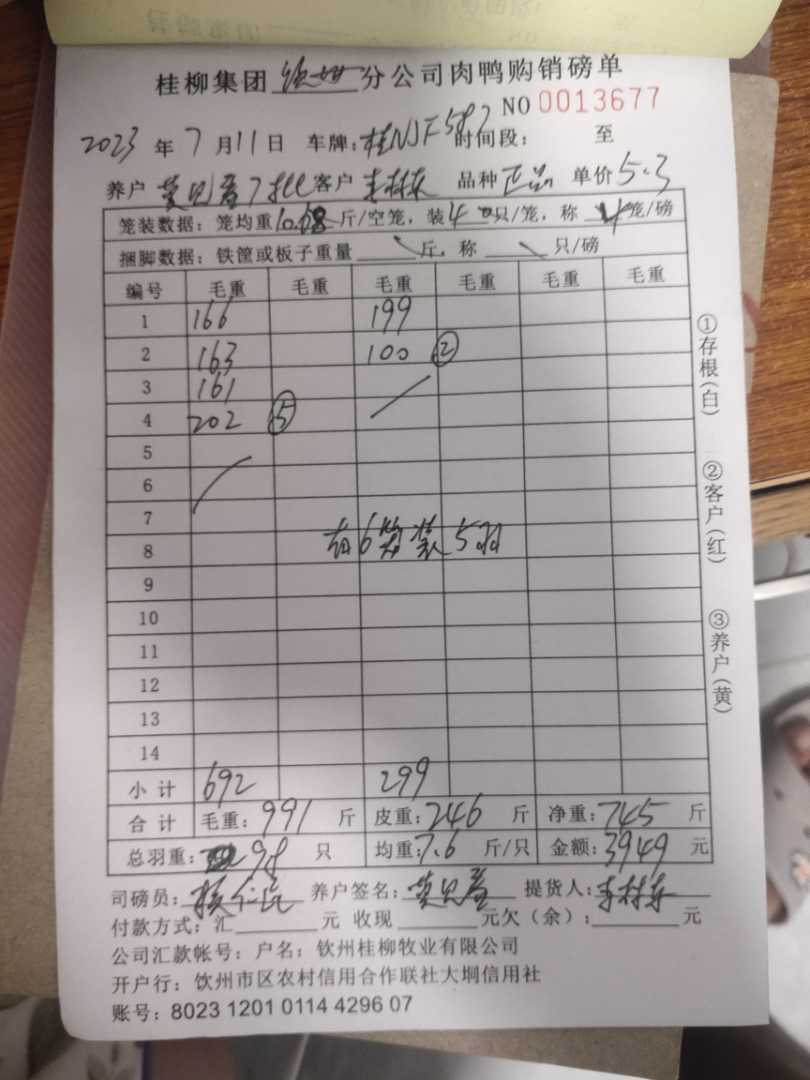 桂柳集团 分公司肉鸭购销磅单
NO 0013677
2023 年 7 月 11 日 车牌: 桂NJF587 时间段: 至
养户 莫见 7批 客户 李林东 品种 正品 单价 5.3
笼装数据: 笼均重 10.68 斤/空笼, 装 4 只/笼, 称 4 笼/磅
捆脚数据: 铁筐或板子重量 \ 斤, 称 \ 只/磅
编号 毛重 毛重 毛重 毛重 毛重 毛重
1 166 199
2 163 100 ②
3 161
4 202 ⑤
5
6
7
8 有6笼装5羽
9
10
11
12
13
14
小计 692 299
合计 毛重: 991 斤 皮重: 246 斤 净重: 745 斤
总羽重: 98 只 均重: 7.6 斤/只 金额: 3949 元
司磅员: 养户签名: 莫见 提货人: 李林东
付款方式: 汇 元 收现 元欠(余): 元
公司汇款帐号: 户名: 钦州桂柳牧业有限公司
开户行: 饮州市区农村信用合作联社大垌信用社
账号: 8023 1201 0114 4296 07
①存根(白)
②客户(红)
③养户(黄)